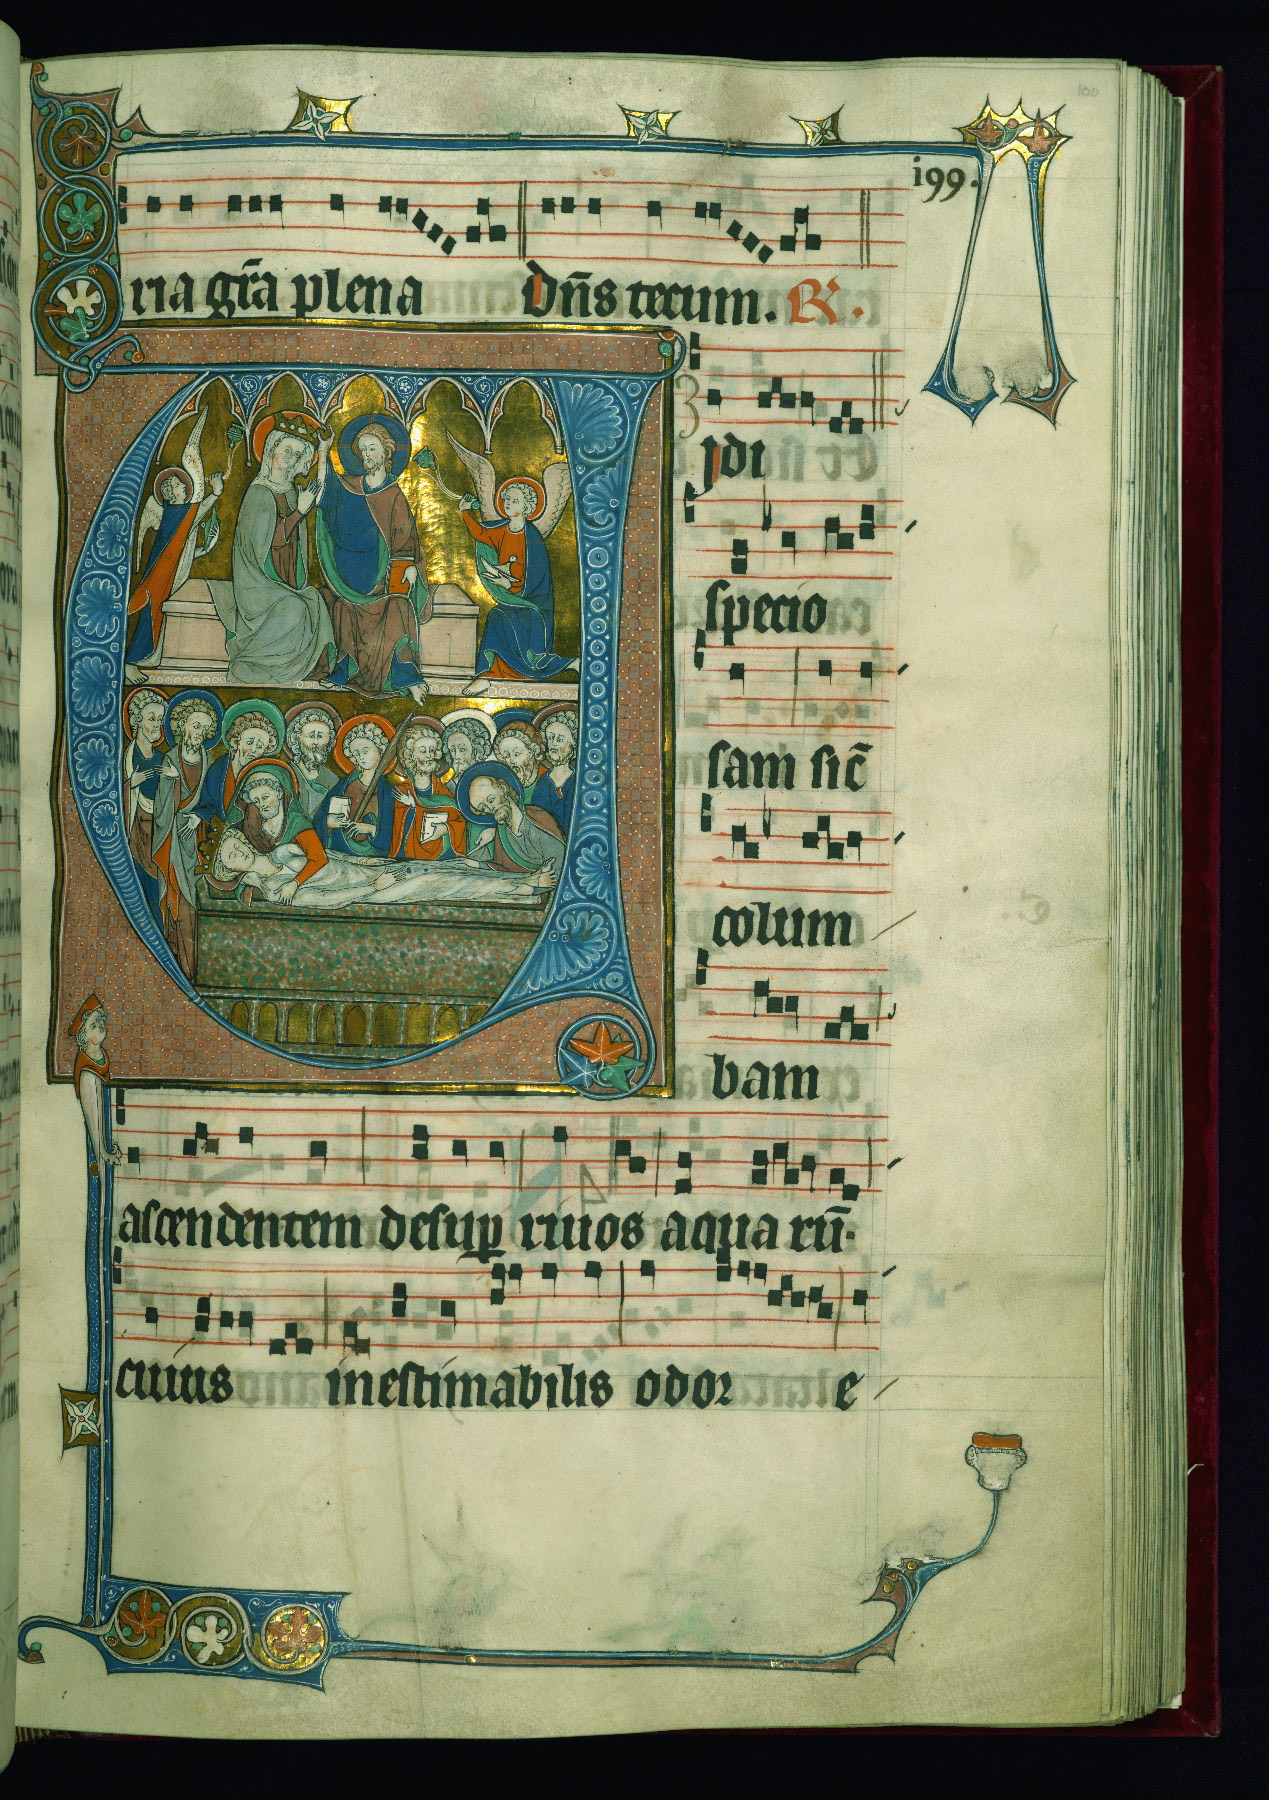 i99.
ria gr̄a plena dn̄s tecum. R.
jdi
specio
sam sic̄
colum
bam
ascendentem desuꝑ riuos aqua rū.
cuius inestimabilis odor e